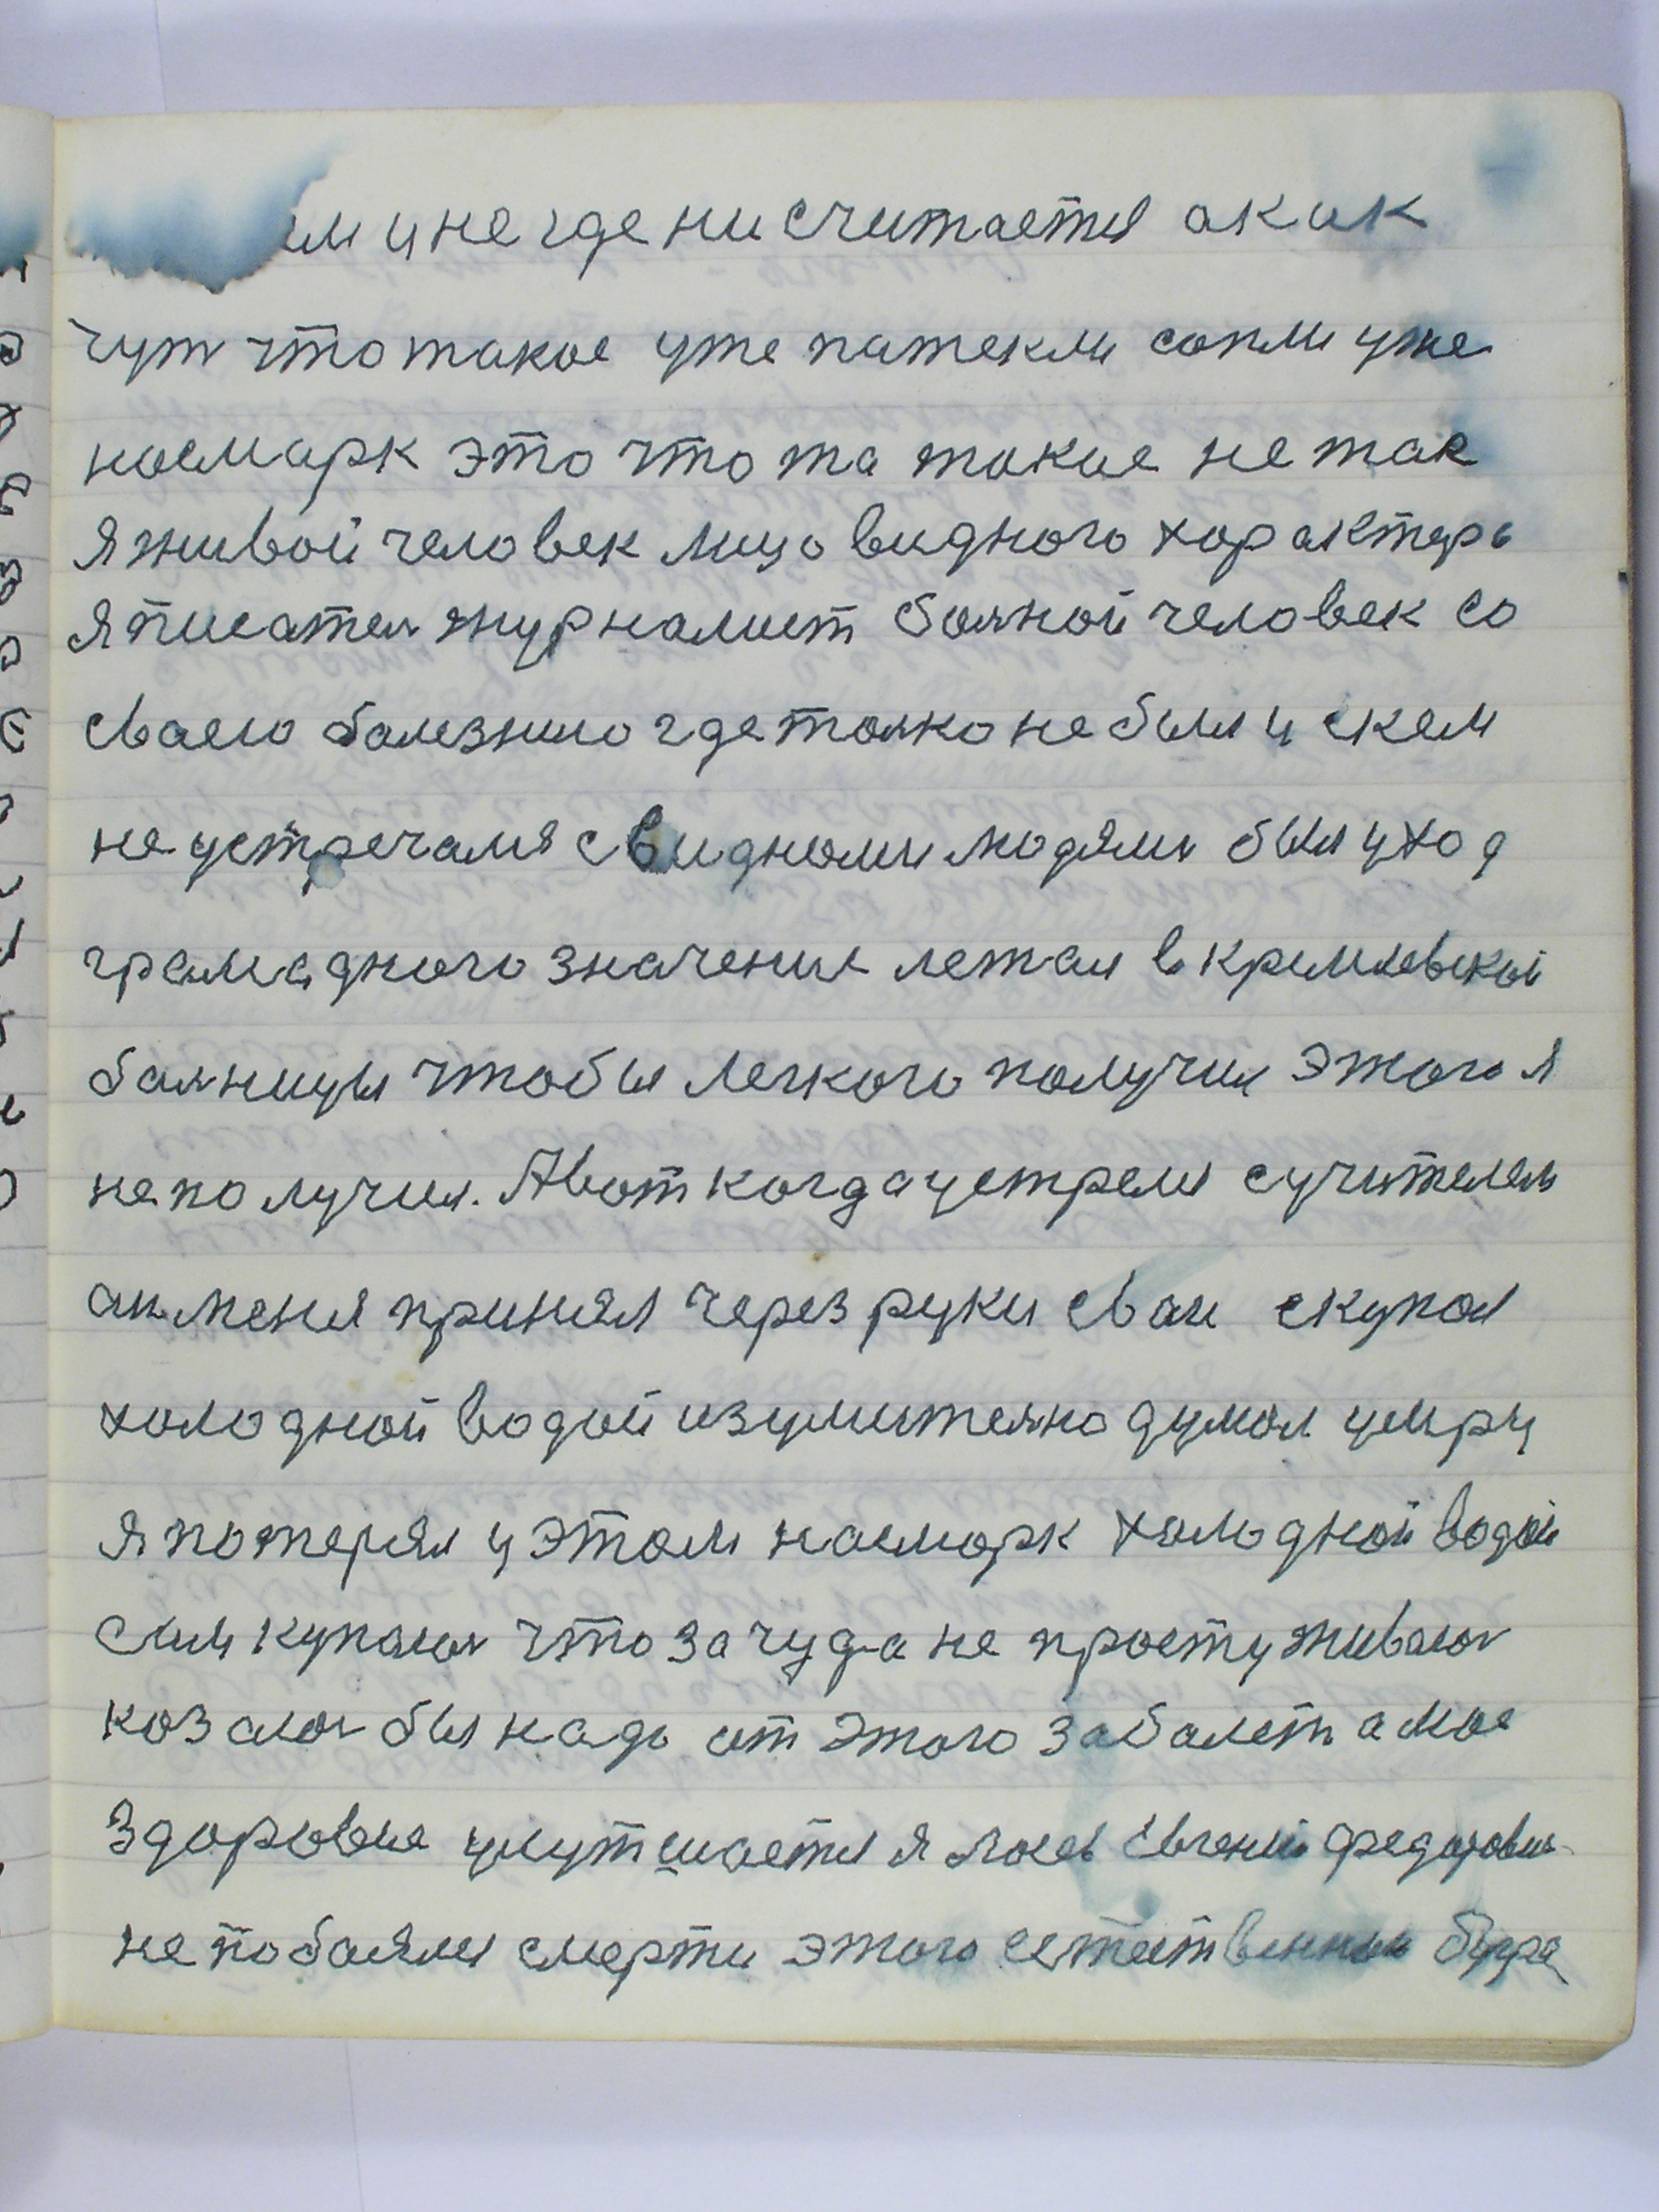 и не где ни считается а как
чут что такое уже патекли сопли уже
насмарк это что та такое не так
я живой человек лицо видного характера
я писател журналист болной человек со
сваею балезнию где толко не был и скем
не устречался с видноми людями был уход
грамадного значения лежал в кремлевской
балницы чтобы легкого получил этого я
не получил. А вот когда устрелся с учителем
ан меня принял через руки сваи скупал
холодной водой изумително думал умру
я потерял у этом насморк холодной водой
сам купаюс что за чуда не простуживаюс
козалос бы надо от этого забалеть а мое
здоровье улутшается я Евгений Федорович
не побаялся смерти этого